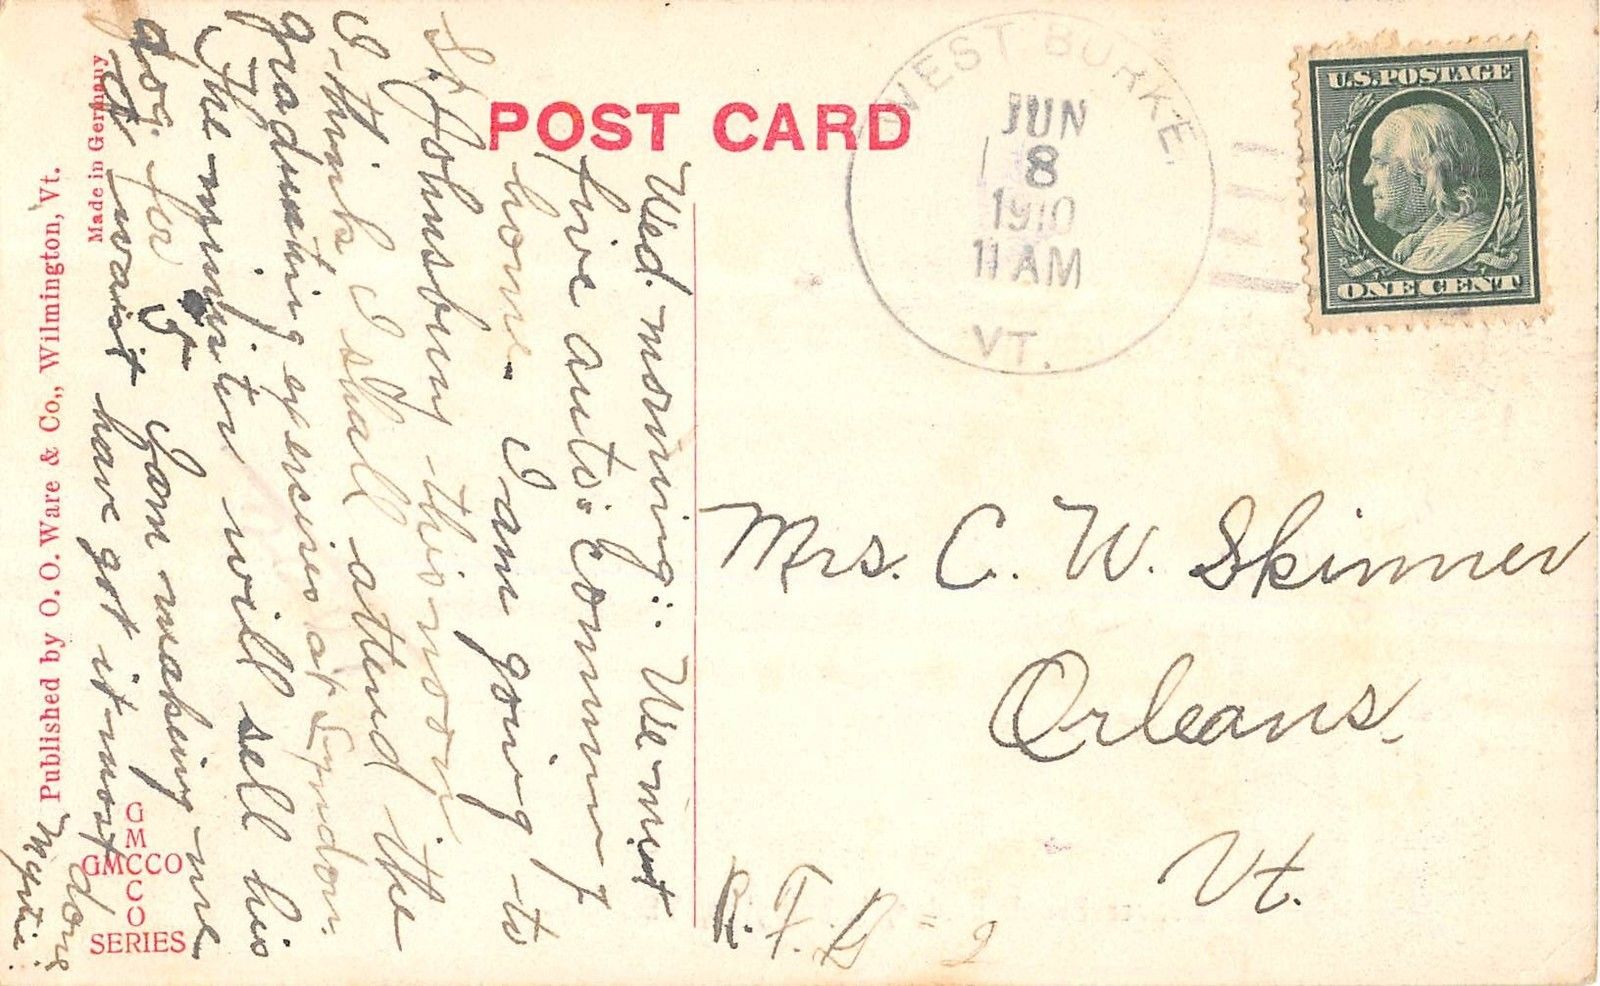 POST CARD
WEST BURKE.
JUN
8
1910
11 AM
VT.
U.S. POSTAGE
ONE CENT
Wed. morning:. We met
five autos comming
home. I am going to
St Johnsbury this noon
I think I shall attend the
graduating exercises at Lyndon.
The minister will sell his
dog. for $5. I am making me
a waist have got it most
done
Myrtie.
Mrs. C. W. Skinner
Orleans,
Vt.
R. F. D = 2
Made in Germany
Published by O. O. Ware & Co., Wilmington, Vt.
G
M
GMCCO
C
O
SERIES